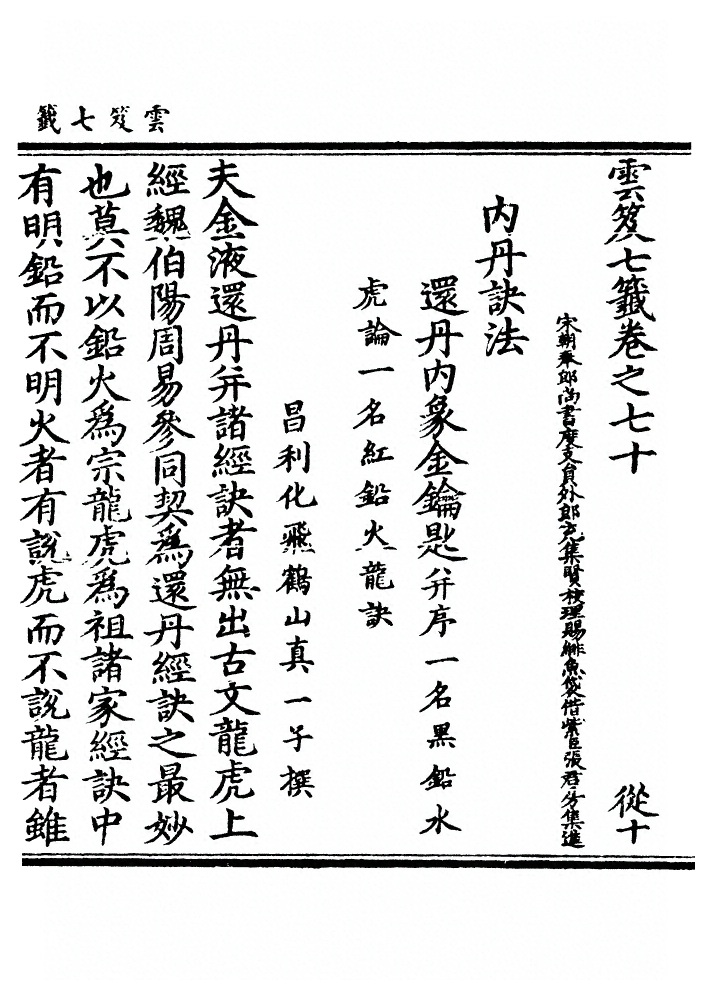 雲笈七籤
雲笈七籤卷之七十 從十
宋朝奉郎尚書度支員外郎充集賢校理賜緋魚袋借紫臣張君房集進
內丹訣法
還丹內象金鑰匙并序一名黑鉛水
虎論一名紅鉛火龍訣
昌利化飛鶴山真一子撰
夫金液還丹并諸經訣者無出古文龍虎上
經魏伯陽周易參同契為還丹經訣之最妙
也莫不以鉛火為宗龍虎為祖諸家經訣中
有明鉛而不明火者有說虎而不說龍者雖